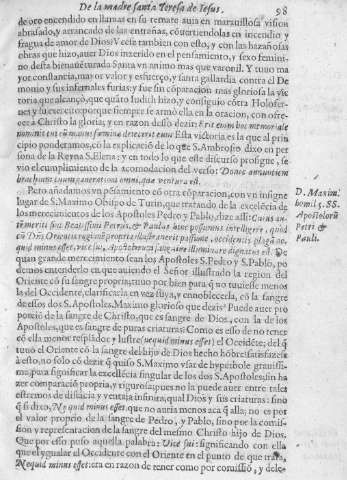 De la madre santa Teresa de Iesus. 98
de oro encendido en llamas en su remate auia en marauillosa vision
abrasado, y arrancado de las entrañas, cõuertiendolas en incendio y
fragua de amor de Dios: Veese tambien con esto, y con las hazañosas
obras que hizo, auer Dios inxerido en el pensamiento, y sexo femini-
no desta bienauẽturada Santa vn animo mas que varonil. Y tuuo ma
yor constancia, mayor valor y esfuerço, y santa gallardia contra el De
monio y sus infernales furias: y fue sin cõparacion mas gloriosa la vic
toria que alcançò, que quãto Iudith hizo, y consiguio cõtra Holofer-
nes y su exercito: porque siempre se armò ella en la oracion, con ofre-
cer a Christo la gloria, y en razon desso dezir: Erit enim hoc memoriale
nominis tui cũ manus fœminæ deiecerit eum Esta victoria es la que al prin
cipio ponderamos, cõ la explicacio de lo que S. Ambrosio dixo en per
sona de la Reyna S. Elena: y en todo lo que este discurso prosigue, se
vio el cumplimiento de la acomodacion del verso: Donec annuntiem
brachium tuum generationi omni, quæ ventura est.
Pero añadamos vn pẽsamiento cõ otra cõparacion, con vn insigne
lugar de S. Maximo Obispo de Turin, que tratando de la excelẽcia de
los merecimientos de los Apostoles Pedro y Pablo, dize assi:
D. Maxim.
homil. 5. SS.
Apostolorũ
Petri &
Pauli.
quan grande merecimiento sean los Apostoles S. Pedro y S. Pablo, po
demos entenderlo en que auiendo el Señor illustrado la region del
Oriente cõ su sangre propria; tuuo por bien para q̃ no tuuiesse menos
la del Occidente, clarificarla en vez suya, y ennoblecerla, cõ la sangre
de essos dos S. Apostoles. Maximo glorioso que dezis? Puede auer pro
porciõ de la sangre de Christo, que es sangre de Dios, con la de los
Apostoles, que es sangre de puras criaturas: Como es esso de no tener
cõ ella menor resplãdor y lustre (nequid minus esset) el Occidẽte; del q̃
tuuo el Oriente cõ la sangre del hijo de Dios hecho hõbre: satisfazese
a esto, no solo cõ dezir q̃ quiso S. Maximo vsar de hyperbole grauissi-
ma, para significar la excelẽcia singular de los dos S. Apostoles, sin ha
zer comparació propria, y rigurosa, pues no la puede auer entre tales
estremos de distãcia y ventaja infinita, qual Dios y sus criaturas: sino
q̃ si dixo, Ne quid minus esset, que no auria menos acà q̃ alla; no es por
el valor propio de la sangre de Pedro, y Pablo, sino por la comis-
sion y representacion de la sangre del mesmo Christo hijo de Dios.
Que por esso puso aquella palabra: Vice sui: significando con ella
que el ygualar el Occidente con el Oriente en el punto de que trata,
Nequid minus esset: era en razon de tener como por comissiõ, y dele-